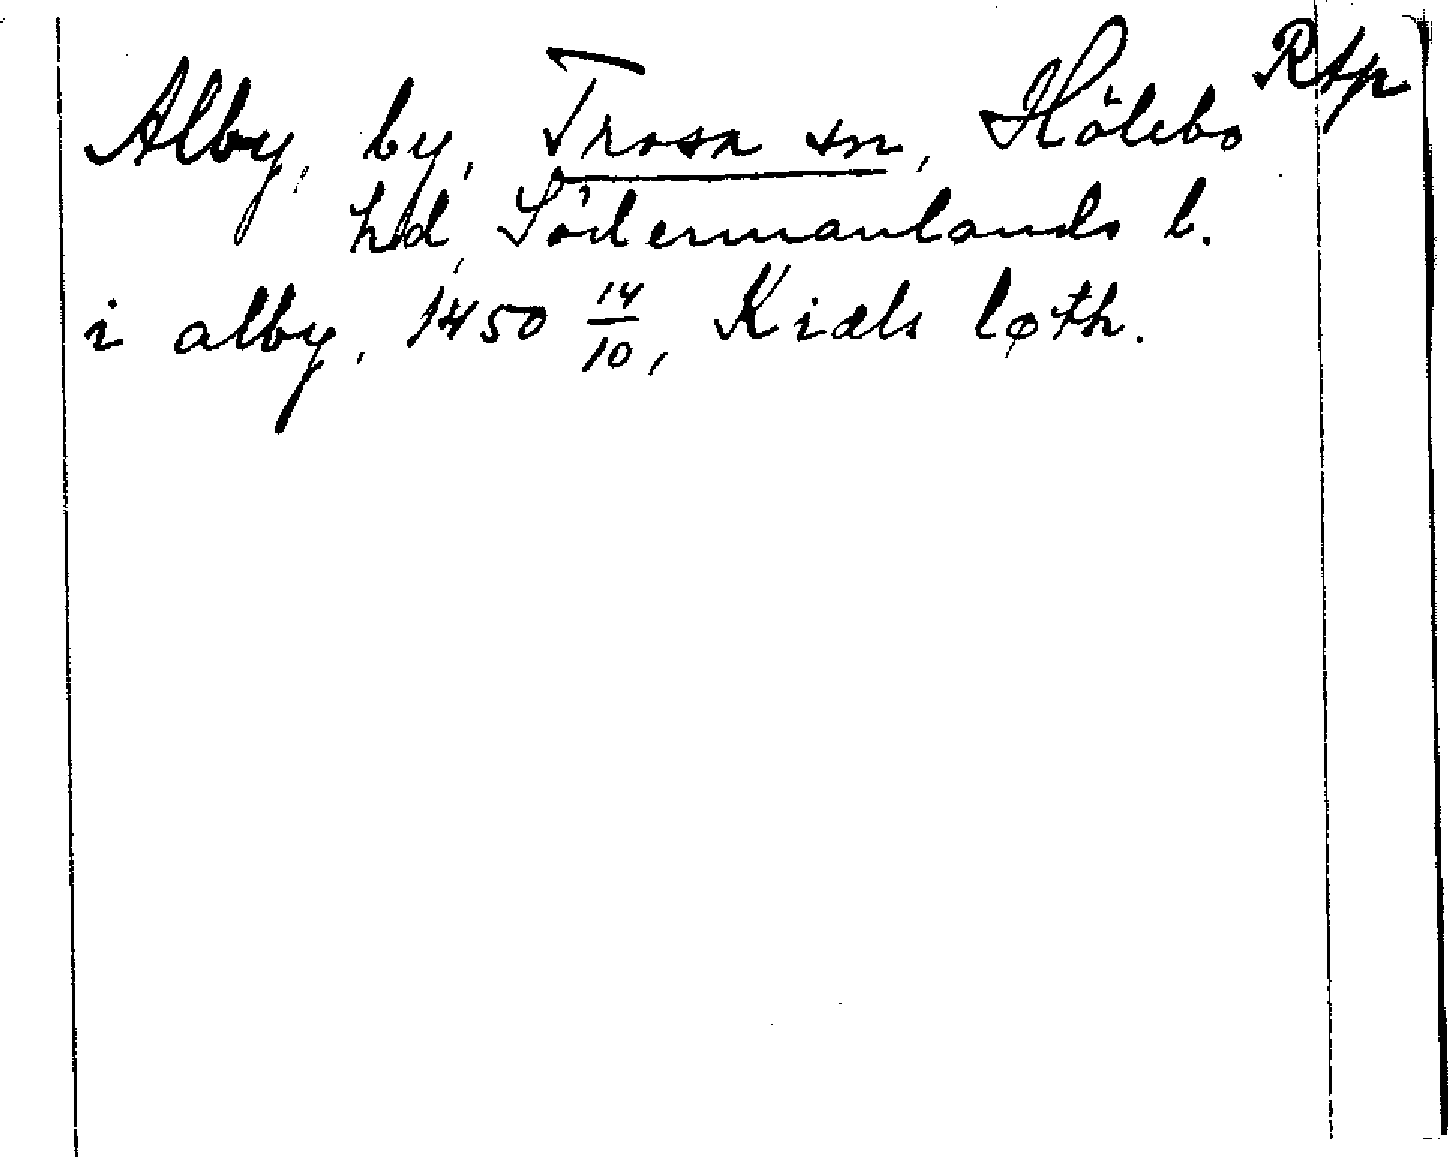 Alby, by, Trosa sn, Hölebo Rtp
hd, Södermanlands l.
i alby, 1450 14/10, Kiæls løth.